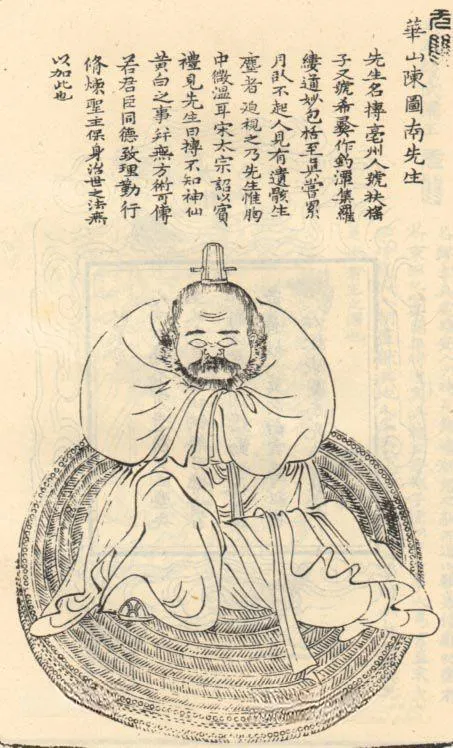 无雙
華山陳圖南先生
先生名摶亳州人號扶搖
子又號希夷作釣潭集羅
縷道妙包括至真嘗累
月臥不起人見有遺骸生
塵者迫視之乃先生惟胸
中微溫耳宋太宗詔以賓
禮見先生曰摶不知神仙
黃白之事并無方術可傳
若君臣同德致理勤行
脩煉聖主保身治世之法無
以加此也